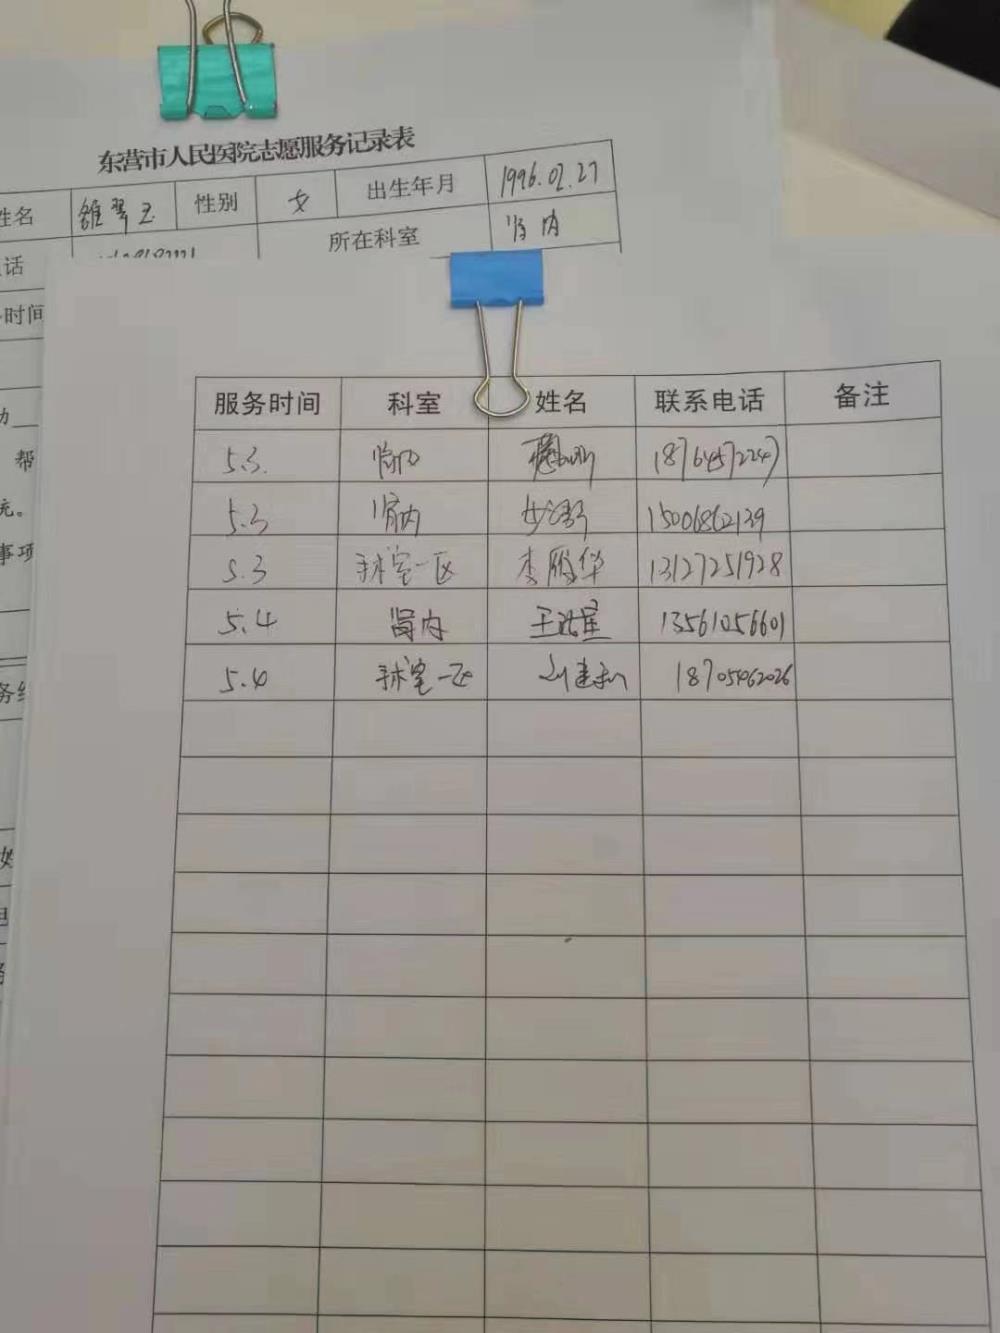 东营市人民医院志愿服务记录表
姓名 性别 女 出生年月 1996.02.27
话 所在科室 肾内
时间
帮
事项
服务时间 科室 姓名 联系电话 备注
5.3. 肾内 18764572247
5.3 肾内 15006862139
5.3 手术室一区 李鹏华 13127251928
5.4 肾内 13561056601
5.4 手术室一区 18705462026